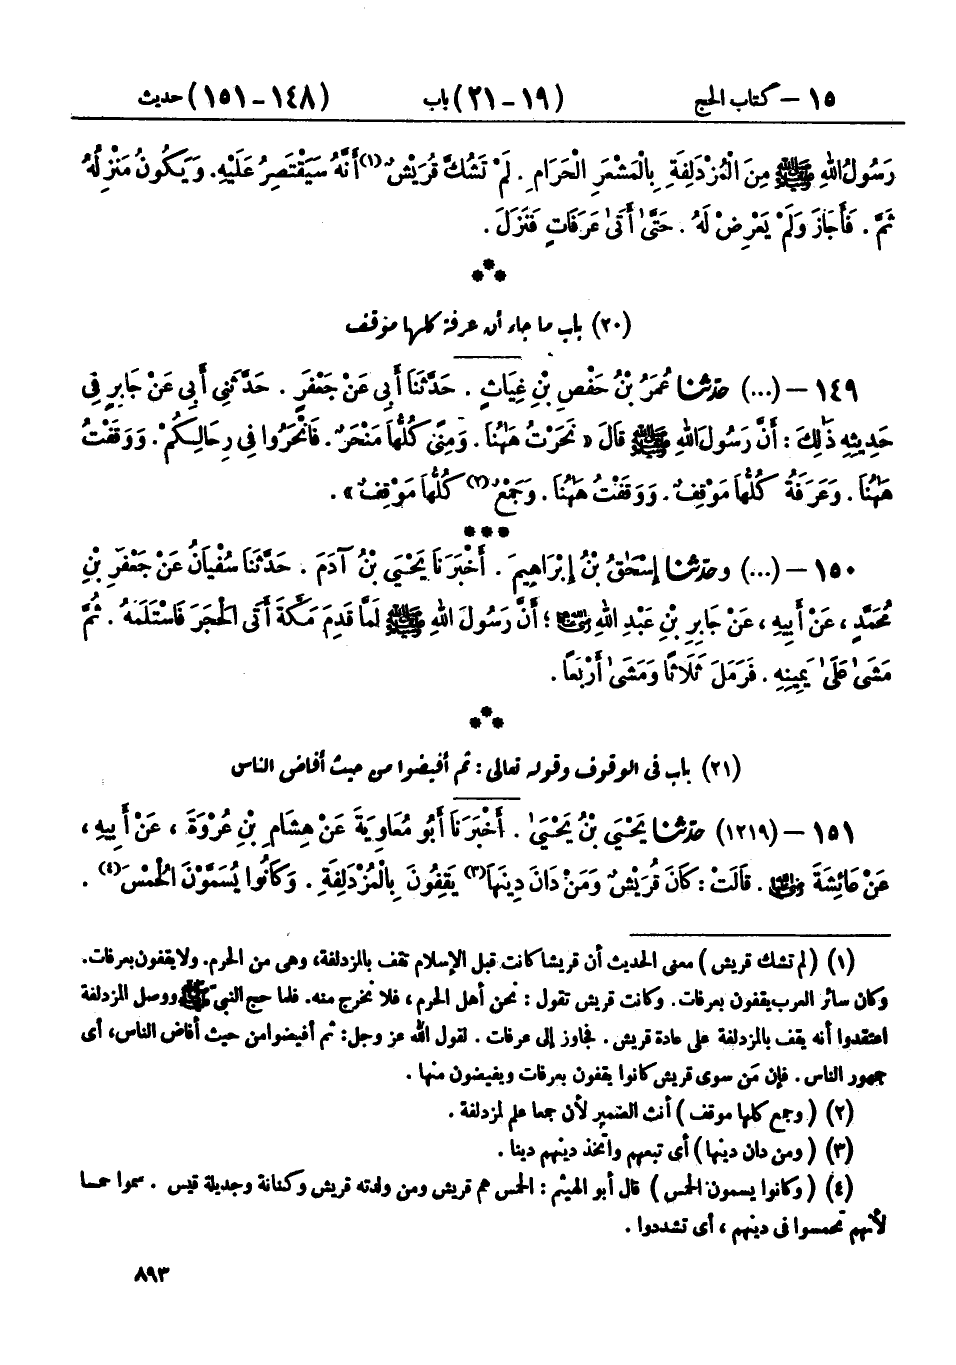 ١٥ – كتاب الحج (١٩ – ٢١) باب (١٤٨ – ١٥١) حديث
رَسُولُ اللهِ ﷺ مِنَ الْمُزْدَلِفَةِ بِالْمَشْعَرِ الْحَرَامِ . لَمْ تَشُكَّ قُرَيْشٌ (١) أَنَّهُ سَيَقْتَصِرُ عَلَيْهِ. وَيَكُونُ مَنْزِلُهُ
ثَمَّ . فَأَجَازَ وَلَمْ يَعْرِضْ لَهُ . حَتَّىٰ أَتَىٰ عَرَفَاتٍ فَنَزَلَ .
***
(٢٠) باب ما جاء أن عرفة كلها موقف
١٤٩ – (...) حدّثنا عُمَرُ بْنُ حَفْصِ بْنِ غِيَاثٍ . حَدَّثَنَا أَبِي عَنْ جَعْفَرٍ . حَدَّثَنِي أَبِي عَنْ جَابِرٍ فِي
حَدِيثِهِ ذَٰلِكَ : أَنَّ رَسُولَ اللهِ ﷺ قَالَ « نَحَرْتُ هَٰهُنَا . وَمِنًى كُلُّهَا مَنْحَرٌ . فَانْحَرُوا فِي رِحَالِكُمْ . وَوَقَفْتُ
هَٰهُنَا . وَعَرَفَةُ كُلُّهَا مَوْقِفٌ . وَوَقَفْتُ هَٰهُنَا . وَجَمْعٌ (٢) كُلُّهَا مَوْقِفٌ » .
***
١٥٠ – (...) وحدّثنا إِسْحَٰقُ بْنُ إِبْرَاهِيمَ . أَخْبَرَنَا يَحْيَىٰ بْنُ آدَمَ . حَدَّثَنَا سُفْيَانُ عَنْ جَعْفَرِ بْنِ
مُحَمَّدٍ ، عَنْ أَبِيهِ ، عَنْ جَابِرِ بْنِ عَبْدِ اللهِ رضي الله عنهما ؛ أَنَّ رَسُولَ اللهِ ﷺ لَمَّا قَدِمَ مَكَّةَ أَتَى الْحَجَرَ فَاسْتَلَمَهُ . ثُمَّ
مَشَىٰ عَلَىٰ يَمِينِهِ . فَرَمَلَ ثَلَاثًا وَمَشَىٰ أَرْبَعًا .
***
(٢١) باب فى الوقوف وقوله تعالى : ثم أفيضوا من حيث أفاض الناس
١٥١ – (١٢١٩) حدّثنا يَحْيَىٰ بْنُ يَحْيَىٰ . أَخْبَرَنَا أَبُو مُعَاوِيَةَ عَنْ هِشَامِ بْنِ عُرْوَةَ ، عَنْ أَبِيهِ ،
عَنْ عَائِشَةَ رضي الله عنها . قَالَتْ : كَانَ قُرَيْشٌ وَمَنْ دَانَ دِينَهَا (٣) يَقِفُونَ بِالْمُزْدَلِفَةِ . وَكَانُوا يُسَمَّوْنَ الْحُمْسَ (٤) .
(١) ( لم تشك قريش ) معنى الحديث أن قريشا كانت قبل الإسلام تقف بالمزدلفة، وهى من الحرم. ولا يقفون بعرفات.
وكان سائر العرب يقفون بعرفات. وكانت قريش تقول : نحن أهل الحرم ، فلا نخرج منه. فلما حج النبىّ ﷺ ووصل المزدلفة
اعتقدوا أنه يقف بالمزدلفة على عادة قريش . فجاوز إلى عرفات . لقول الله عز وجل: ثم أفيضوا من حيث أفاض الناس، أى
جمهور الناس . فإن مَن سوى قريش كانوا يقفون بعرفات ويفيضون منها .
(٢) ( وجمع كلها موقف ) أنث الضمير لأن جمعا علم لمزدلفة .
(٣) ( ومن دان دينها ) أى تبعهم واتخذ دينهم دينا .
(٤) ( وكانوا يسمون الحمس ) قال أبو الهيثم : الحمس هم قريش ومن ولدته قريش وكنانة وجديلة قيس . سموا حمسا
لأنهم تحمسوا فى دينهم ، أى تشددوا .
٨٩٣